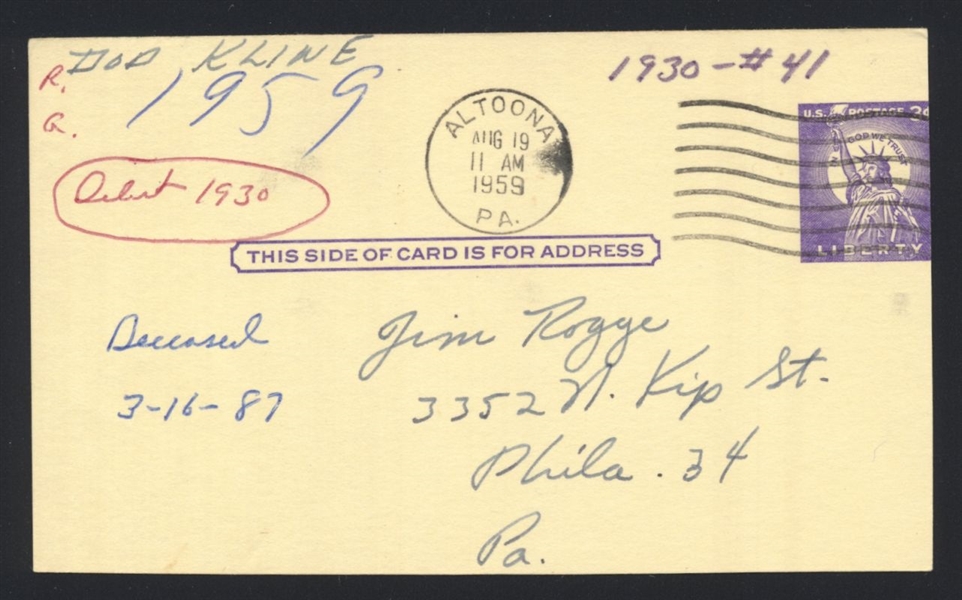 DOD KLINE
1959
R.
Q.
1930-#41
ALTOONA
AUG 19
11 AM
1959
PA.
U.S. POSTAGE 3¢
IN GOD WE TRUST
LIBERTY
Debut 1930
THIS SIDE OF CARD IS FOR ADDRESS
Deceased
3-16-87
Jim Rogge
3352 N. Kip St.
Phila. 34
Pa.